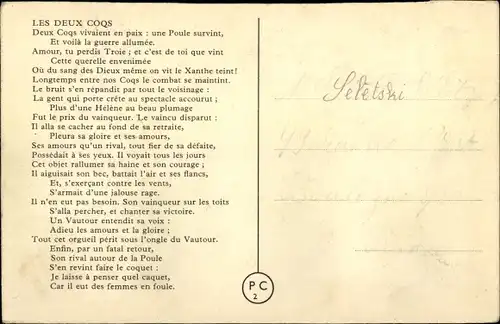 LES DEUX COQS
Deux Coqs vivaient en paix : une Poule survint,
Et voilà la guerre allumée.
Amour, tu perdis Troie ; et c'est de toi que vint
Cette querelle envenimée
Où du sang des Dieux même on vit le Xanthe teint!
Longtemps entre nos Coqs le combat se maintint.
Le bruit s'en répandit par tout le voisinage :
La gent qui porte crête au spectacle accourut ;
Plus d'une Hélène au beau plumage
Fut le prix du vainqueur. Le vaincu disparut :
Il alla se cacher au fond de sa retraite,
Pleura sa gloire et ses amours,
Ses amours qu'un rival, tout fier de sa défaite,
Possédait à ses yeux. Il voyait tous les jours
Cet objet rallumer sa haine et son courage ;
Il aiguisait son bec, battait l'air et ses flancs,
Et, s'exerçant contre les vents,
S'armait d'une jalouse rage.
Il n'en eut pas besoin. Son vainqueur sur les toits
S'alla percher, et chanter sa victoire.
Un Vautour entendit sa voix :
Adieu les amours et la gloire ;
Tout cet orgueil périt sous l'ongle du Vautour.
Enfin, par un fatal retour,
Son rival autour de la Poule
S'en revint faire le coquet :
Je laisse à penser quel caquet,
Car il eut des femmes en foule.
Seletski
PC
2